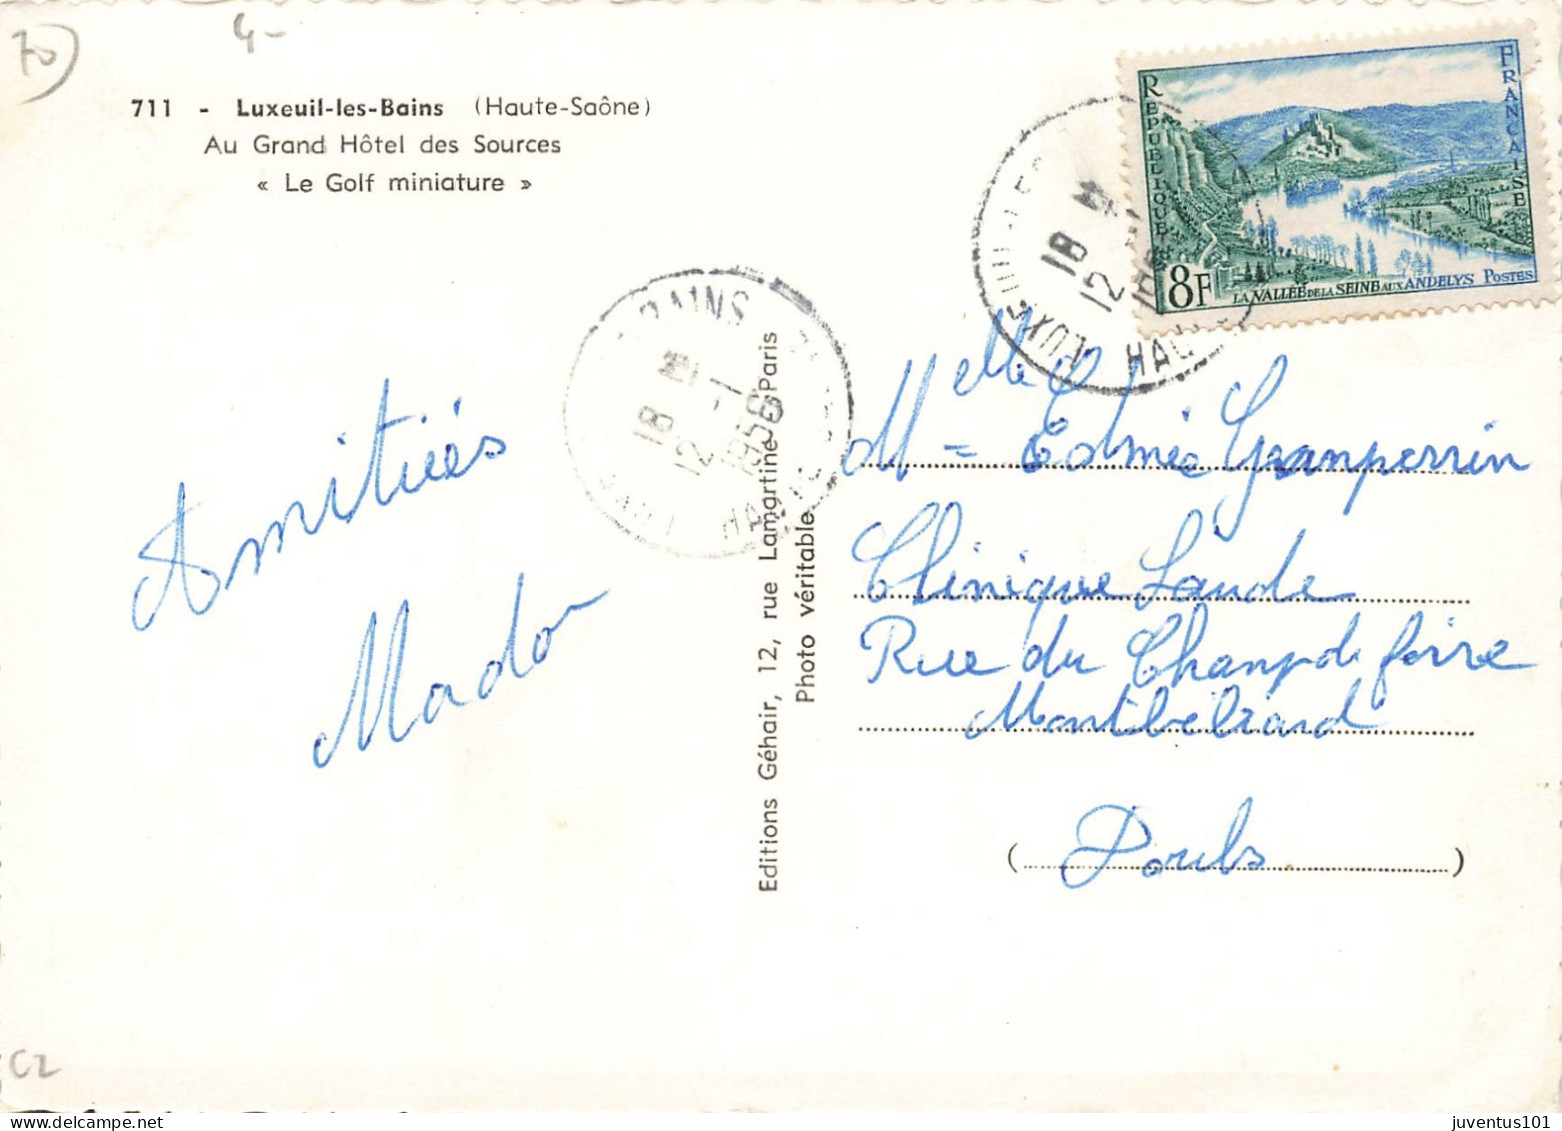 70
4-
711 - Luxeuil-les-Bains (Haute-Saône)
Au Grand Hôtel des Sources
« Le Golf miniature »
REPUBLIQUE FRANÇAISE
8F
LA VALLÉE DE LA SEINE AUX ANDELYS POSTES
18 H
12 -1
1956
BAINS
HAUTE
18 H
12
LUXEUIL-LES
HAU
Amitiés
Mado
Editions Géhair, 12, rue Lamartine - Paris
Photo véritable
Melle Edmée Granperrin
Clinique Lande
Rue du Champ de foire
Montbéliard
(Doubs)
CZ
juventus101